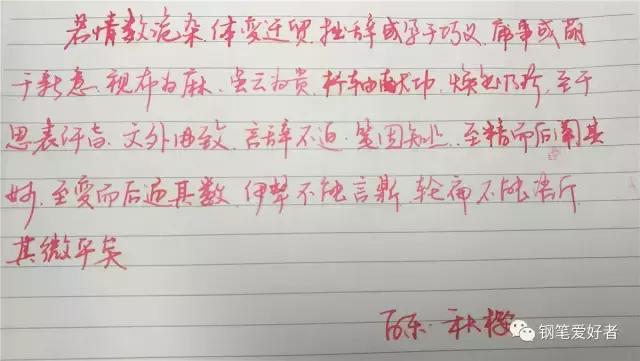 若情数诡杂.体变迁贸.拙辞或孕于巧义.庸事或萌
于新意.视布为麻.虽云为贵.杼轴献功.焕然乃珍.至于
思表纤旨.文外曲致.言辞不追.笔固知止.至精而后阐其
妙.至变而后通其数.伊挚不能言鼎.轮扁不能语斤.
其微乎矣
秋
钢笔爱好者